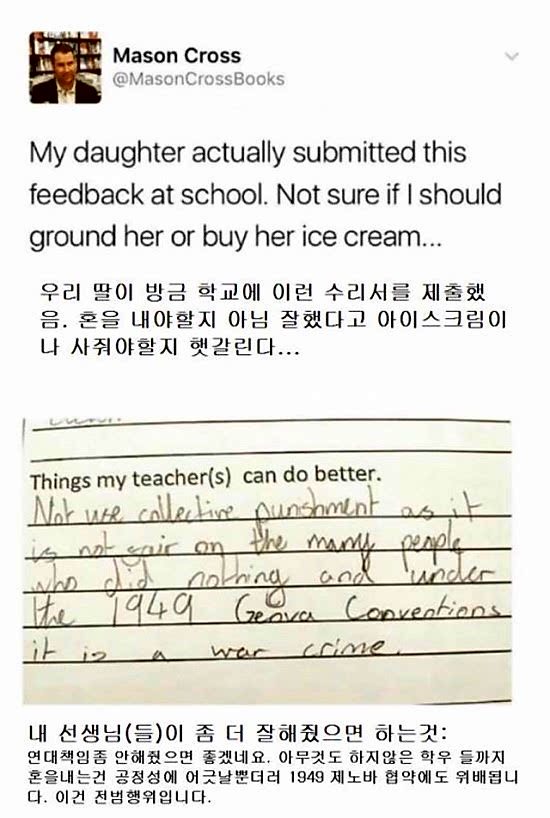 Mason Cross
@MasonCrossBooks
My daughter actually submitted this
feedback at school. Not sure if I should
ground her or buy her ice cream...
우리 딸이 방금 학교에 이런 수리서를 제출했
음. 혼을 내야할지 아님 잘했다고 아이스크림이
나 사줘야할지 햇갈린다...
Things my teacher(s) can do better.
Not use collective punishment as it
is not fair on the many people
who did nothing and under
the 1949 Geneva Conventions
it is a war crime.
내 선생님(들)이 좀 더 잘해줬으면 하는것:
연대책임좀 안해줬으면 좋겠네요. 아무것도 하지않은 학우 들까지
혼을내는건 공정성에 어긋날뿐더러 1949 제노바 협약에도 위배됩니
다. 이건 전범행위입니다.